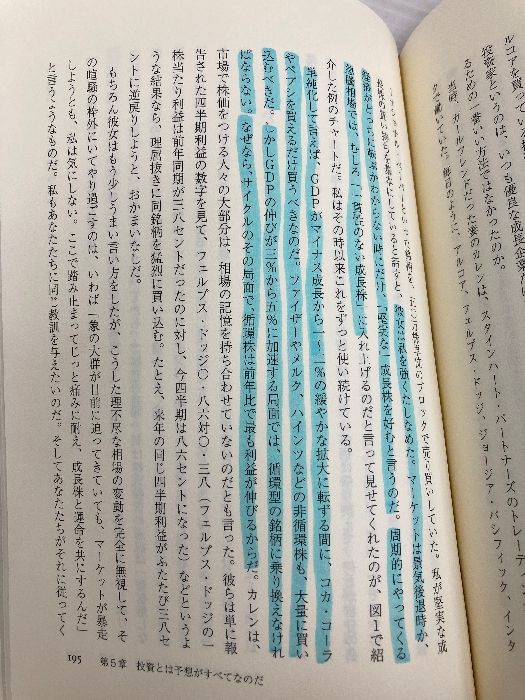 ルコアを買うよりも優良な成長企業
投資家というのは、
るための一番いい方法ではなかったのか。
当時、カールランドだった妻のカレンは、スタインハート・パートナーズのトレーデ
クで働いていた。毎日のように、アルコア、フェルプス・ドッジ、ジョージア・パシフィック、インタ
ブロックで売り買いしていた。私が堅実な成
していると話すと、彼女は私を強くたしなめた。マーケットは景気後退時か、
経済がどっちに転ぶかわからない時にだけ、「堅実な」成長株を好むと言うのだ。周期的にやってくる
急騰相場では、むしろ「堅実でない成長株」に入れ上げるのだと言って見せてくれたのが、図1で紹
介した例のチャートだ。私はその時以来これをずっと使い続けている。
単純化して言えば、GDPがマイナス成長から一〜二%の緩やかな拡大に転ずる間に、コカ・コーラ
やペプシを買えるだけ買うべきなのだ。ファイザーやメルク、ハインツなどの非循環株も、大量に買い
込むべきだ。しかしGDPの伸びが三%から五%に加速する局面では、循環型の銘柄に乗り換えなけれ
ばならない。なぜなら、サイクルのその局面で、循環株は前年比で最も利益が伸びるからだ。カレンは、
市場で株価をつける人々の大部分は、相場の記憶を持ち合わせていないのだとも言った。彼らは単に報
告された四半期利益の数字を見て、フェルプス・ドッジ〇・八六対〇・三八(フェルプス・ドッジの一
株当たり利益は前年同期が三八セントだったのに対し、今四半期は八六セントになった)などというよ
うな結果なら、理屈抜きに同銘柄を猛烈に買い込む。たとえ、来年の同じ四半期利益がふたたび三八セ
ントに逆戻りしようと、おかまいなしだ。
もちろん彼女はもう少しうまい言い方をしたが、こうした理不尽な相場の変動を完全に無視して、そ
の喧騒の枠外にいてやり過ごすのは、いわば「象の大群が目前に迫ってきていても、マーケットが暴走
しようとも、私は気にしない。ここで踏み止まってじっと痛みに耐え、成長株と運命を共にするんだ」
と言うようなものだ。私もあなたたちに同じ教訓を与えたいのだ。そしてあなたたちがそれに従ってく
195 第5章 投資とは予想がすべてなのだ